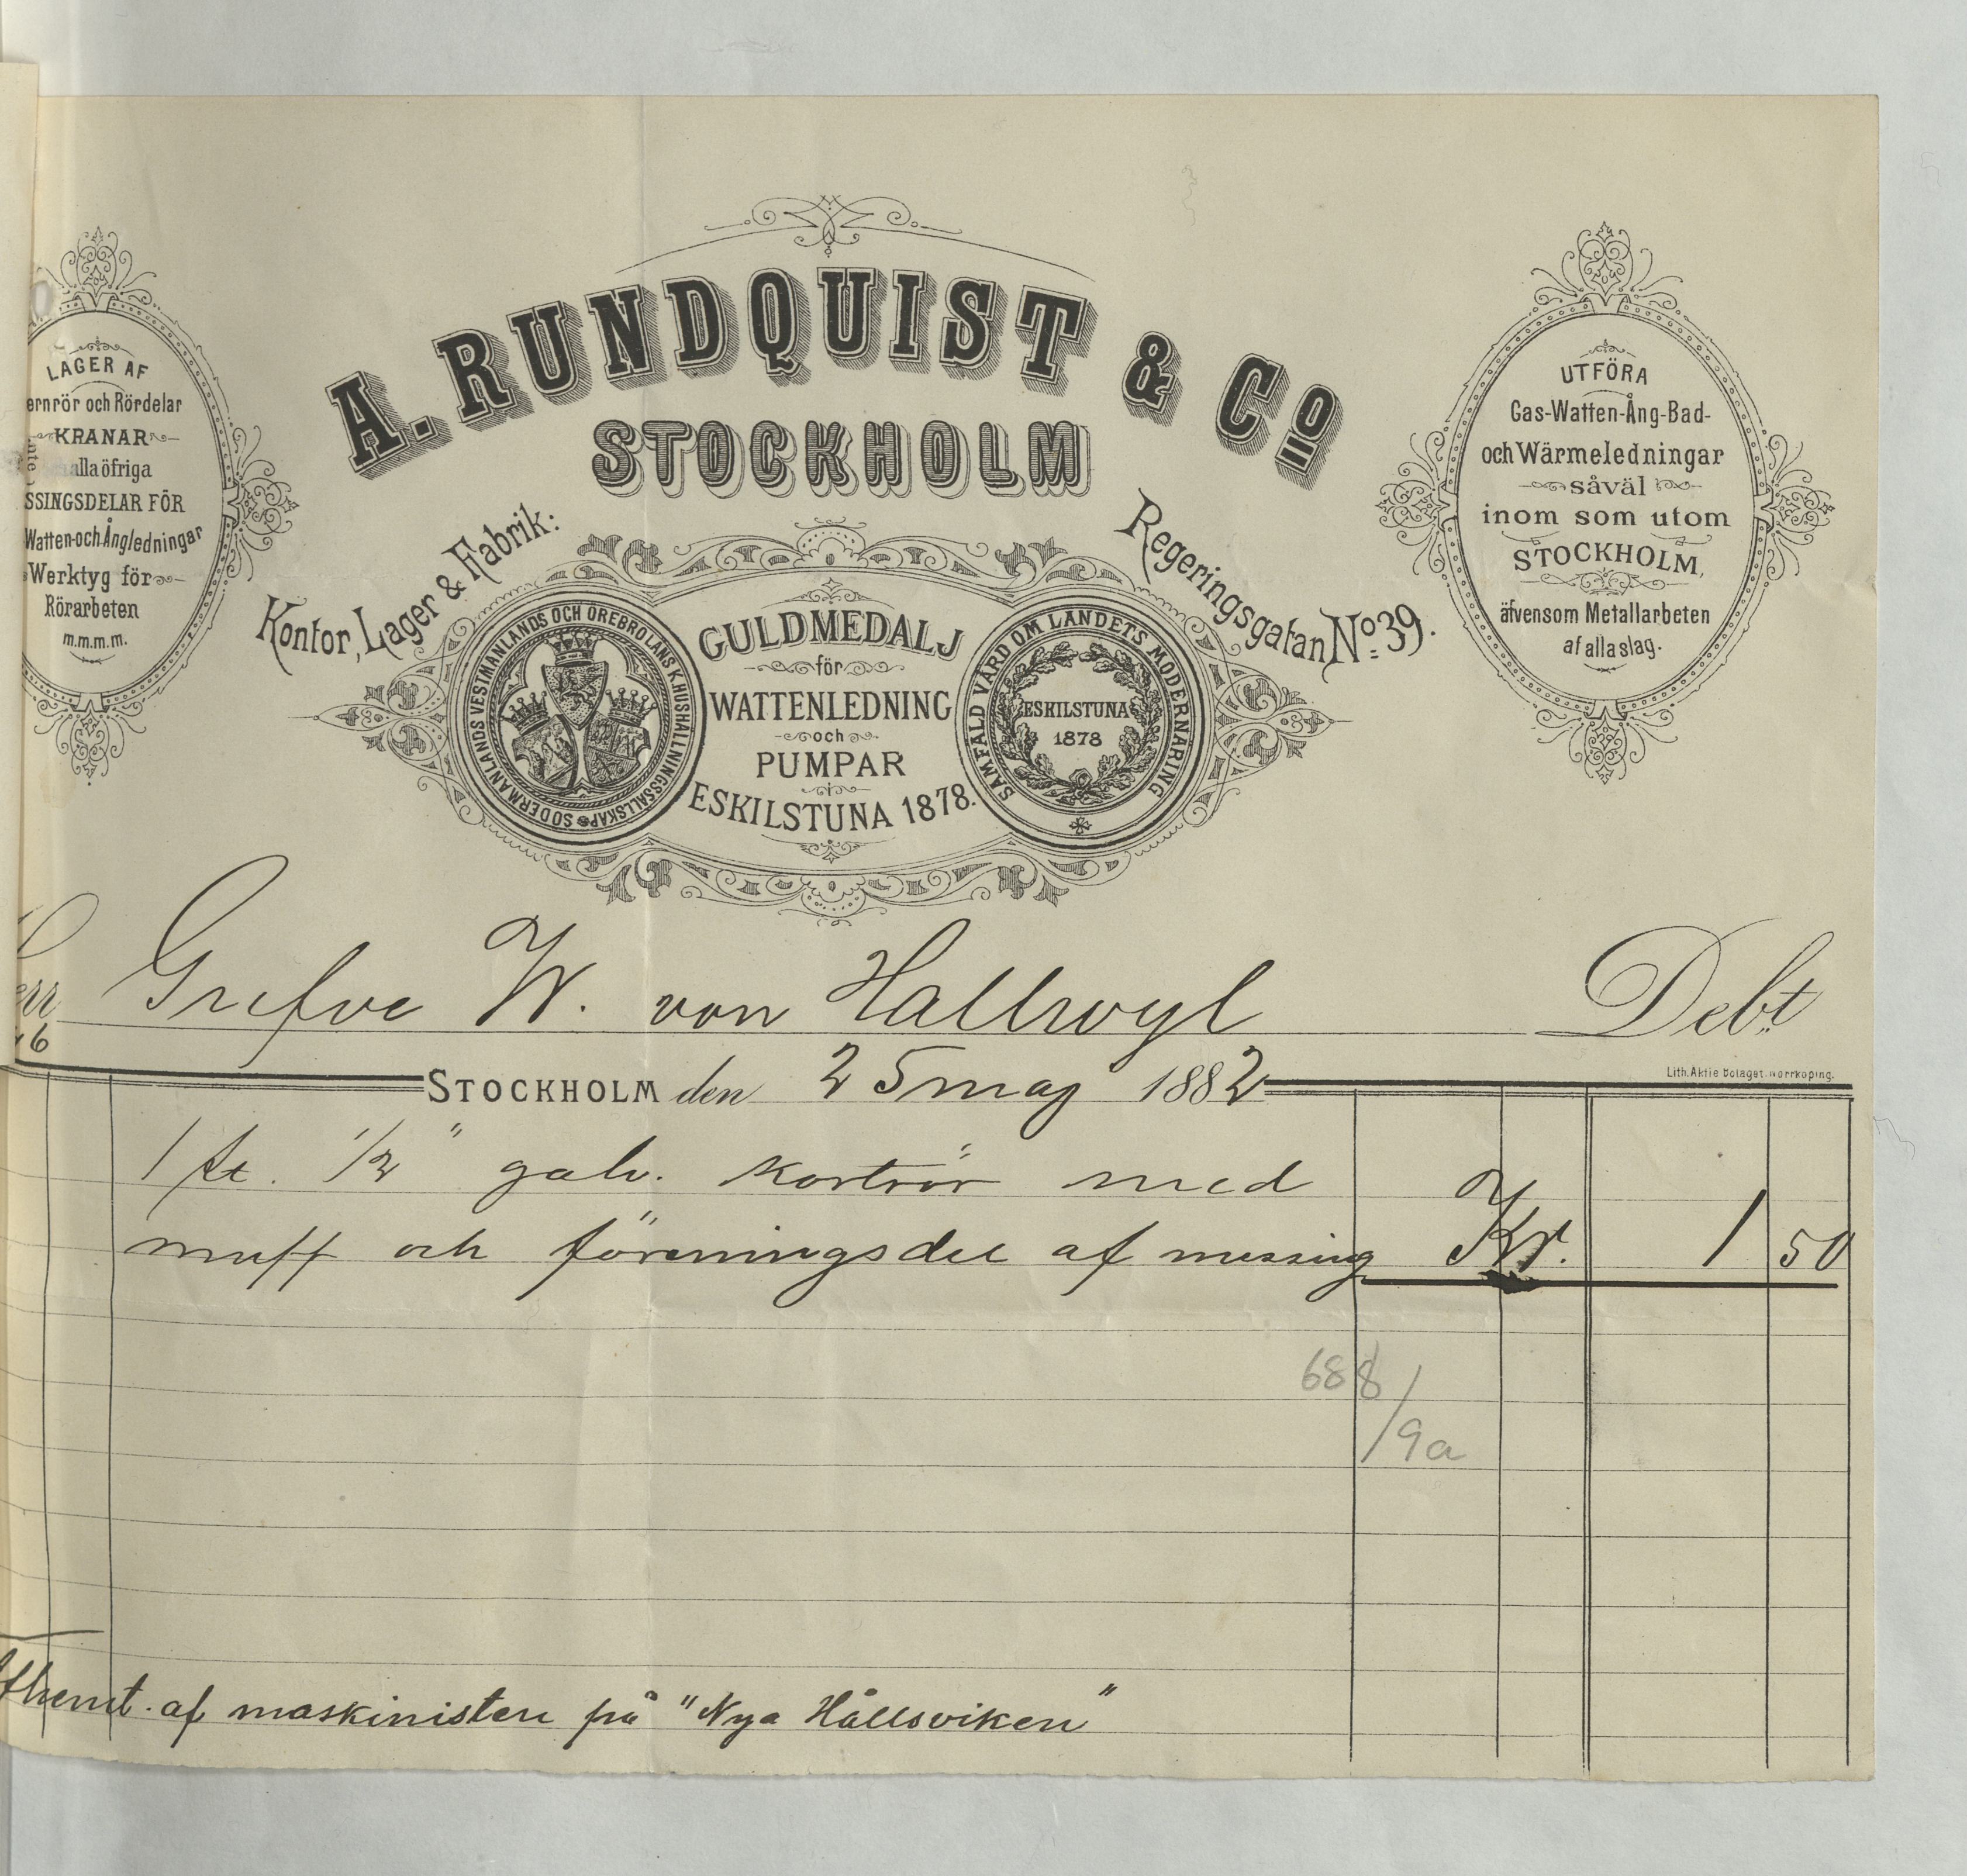 A. RUNDQUIST & Co
STOCKHOLM
Kontor, Lager & Fabrik:
Regeringsgatan No 39.
LAGER AF
ernrör och Rördelar
KRANAR
alla öfriga
SSINGSDELAR FÖR
Watten-och Ångledningar
Werktyg för
Rörarbeten
m.m.m.m.
SÖDERMANLANDS VESTMANLANDS OCH ÖREBRO LÄNS K. HUSHÅLLNINGSSÄLLSKAP
GULDMEDALJ
för
WATTENLEDNING
och
PUMPAR
ESKILSTUNA 1878.
SAMFÄLD VÅRD OM LANDETS MODERNÄRING
ESKILSTUNA
1878
UTFÖRA
Gas-Watten-Ång-Bad-
och Wärmeledningar
såväl
inom som utom
STOCKHOLM,
äfvensom Metallarbeten
af alla slag.
err Grefve W. von Hallwyl Debt
46
Lith. Aktie bolaget. Norrköping.
STOCKHOLM den 25 maj 1882
1 st. 1/2" galv. kortrör med
muff och föreningsdel af messing Kr. 1 50
688
/9a
Afhemt. af maskinisten på "Nya Hållsviken"